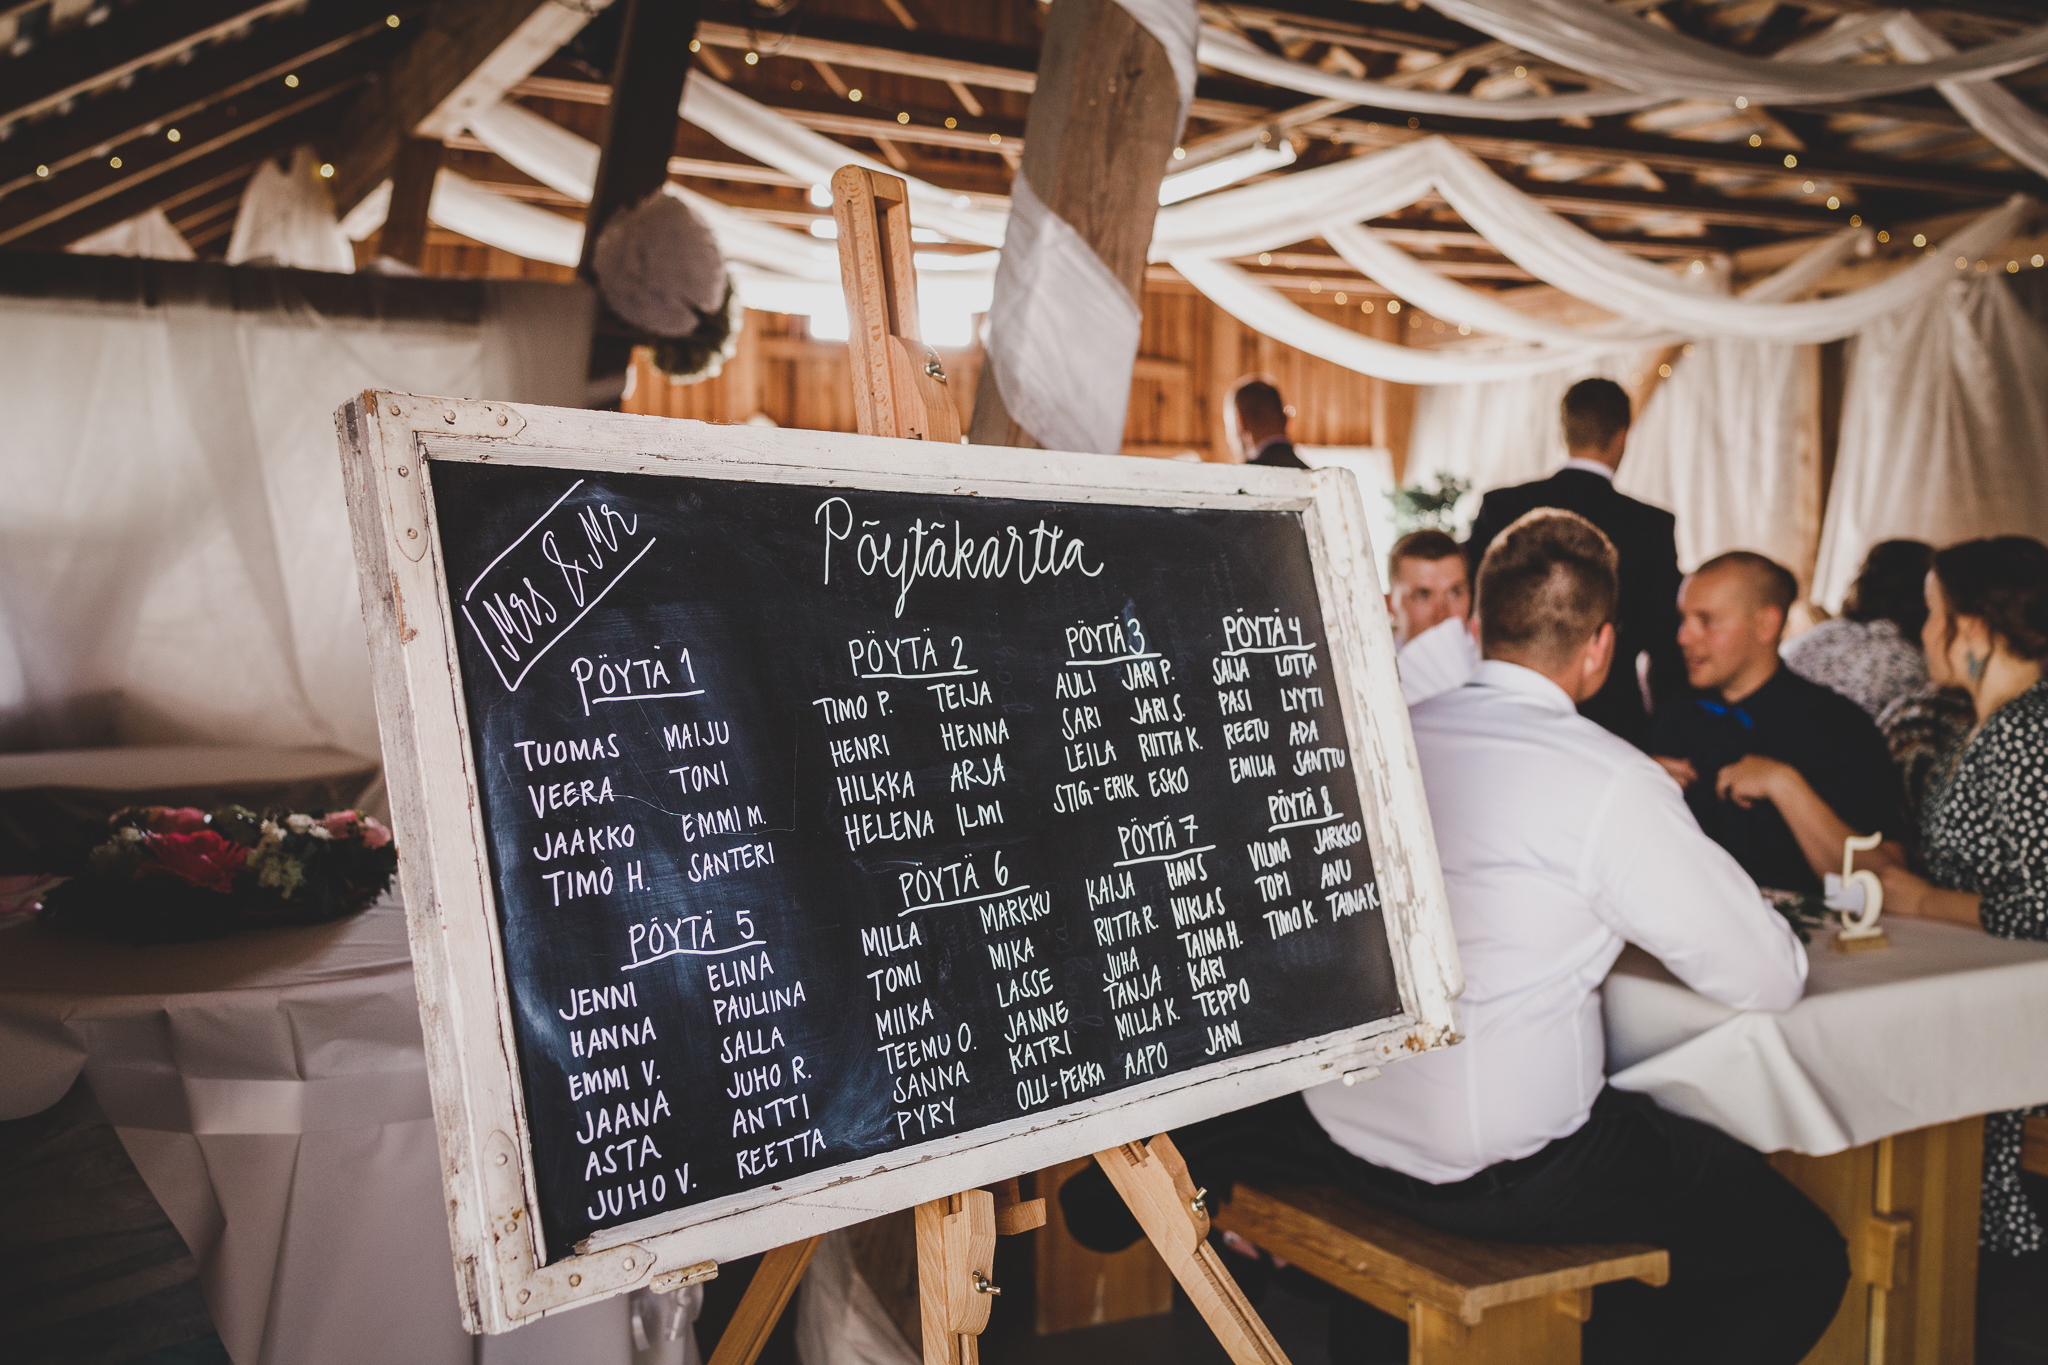 Mrs & Mr
Pöytäkartta
PÖYTÄ 1
TUOMAS MAIJU
VEERA TONI
JAAKKO EMMI M.
TIMO H. SANTERI
PÖYTÄ 2
TIMO P. TEIJA
HENRI HENNA
HILKKA ARJA
HELENA ILMI
PÖYTÄ 3
AULI JARI P.
SARI JARI S.
LEILA RIITTA K.
STIG-ERIK ESKO
PÖYTÄ 4
SAIJA LOTTA
PASI LYYTI
REETU ADA
EMILIA SANTTU
PÖYTÄ 5
JENNI ELINA
HANNA PAULIINA
EMMI V. SALLA
JAANA JUHO R.
ASTA ANTTI
JUHO V. REETTA
PÖYTÄ 6
MILLA MARKKU
TOMI MIKA
MIIKA LASSE
TEEMU O. JANNE
SANNA KATRI
PYRY OLLI-PEKKA
PÖYTÄ 7
KAIJA HANS
RIITTA R. NIKLAS
JUHA TAINA H.
TANJA KARI
MILLA K. TEPPO
AAPO JANI
PÖYTÄ 8
VILMA JARKKO
TOPI ANU
TIMO K. TAINA K.
5